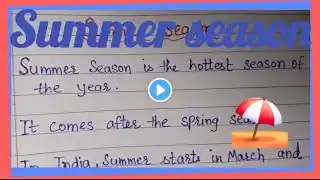 Summer season
Season
Summer Season is the hottest season of
the year.
It comes after the spring
In India, Summer starts in March and